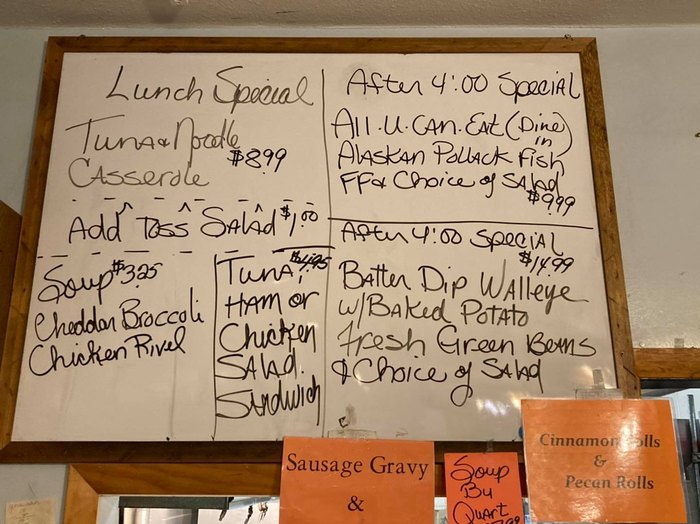 Lunch Special
Tuna & Noodle
$8.99
Casserole
Add Toss Salad $1.00
Soup $3.25
Cheddar Broccoli
Chicken Rivel
$4.95
Tuna,
Ham or
Chicken
Salad
Sandwich
After 4:00 Special
All.U.Can.Eat (Dine)
in
Alaskan Pollack Fish
FF & Choice of Salad
$9.99
After 4:00 Special
$14.99
Batter Dip Walleye
w/Baked Potato
Fresh Green Beans
& Choice of Salad
Sausage Gravy
&
Soup
By
Quart
Cinnamon Rolls
&
Pecan Rolls